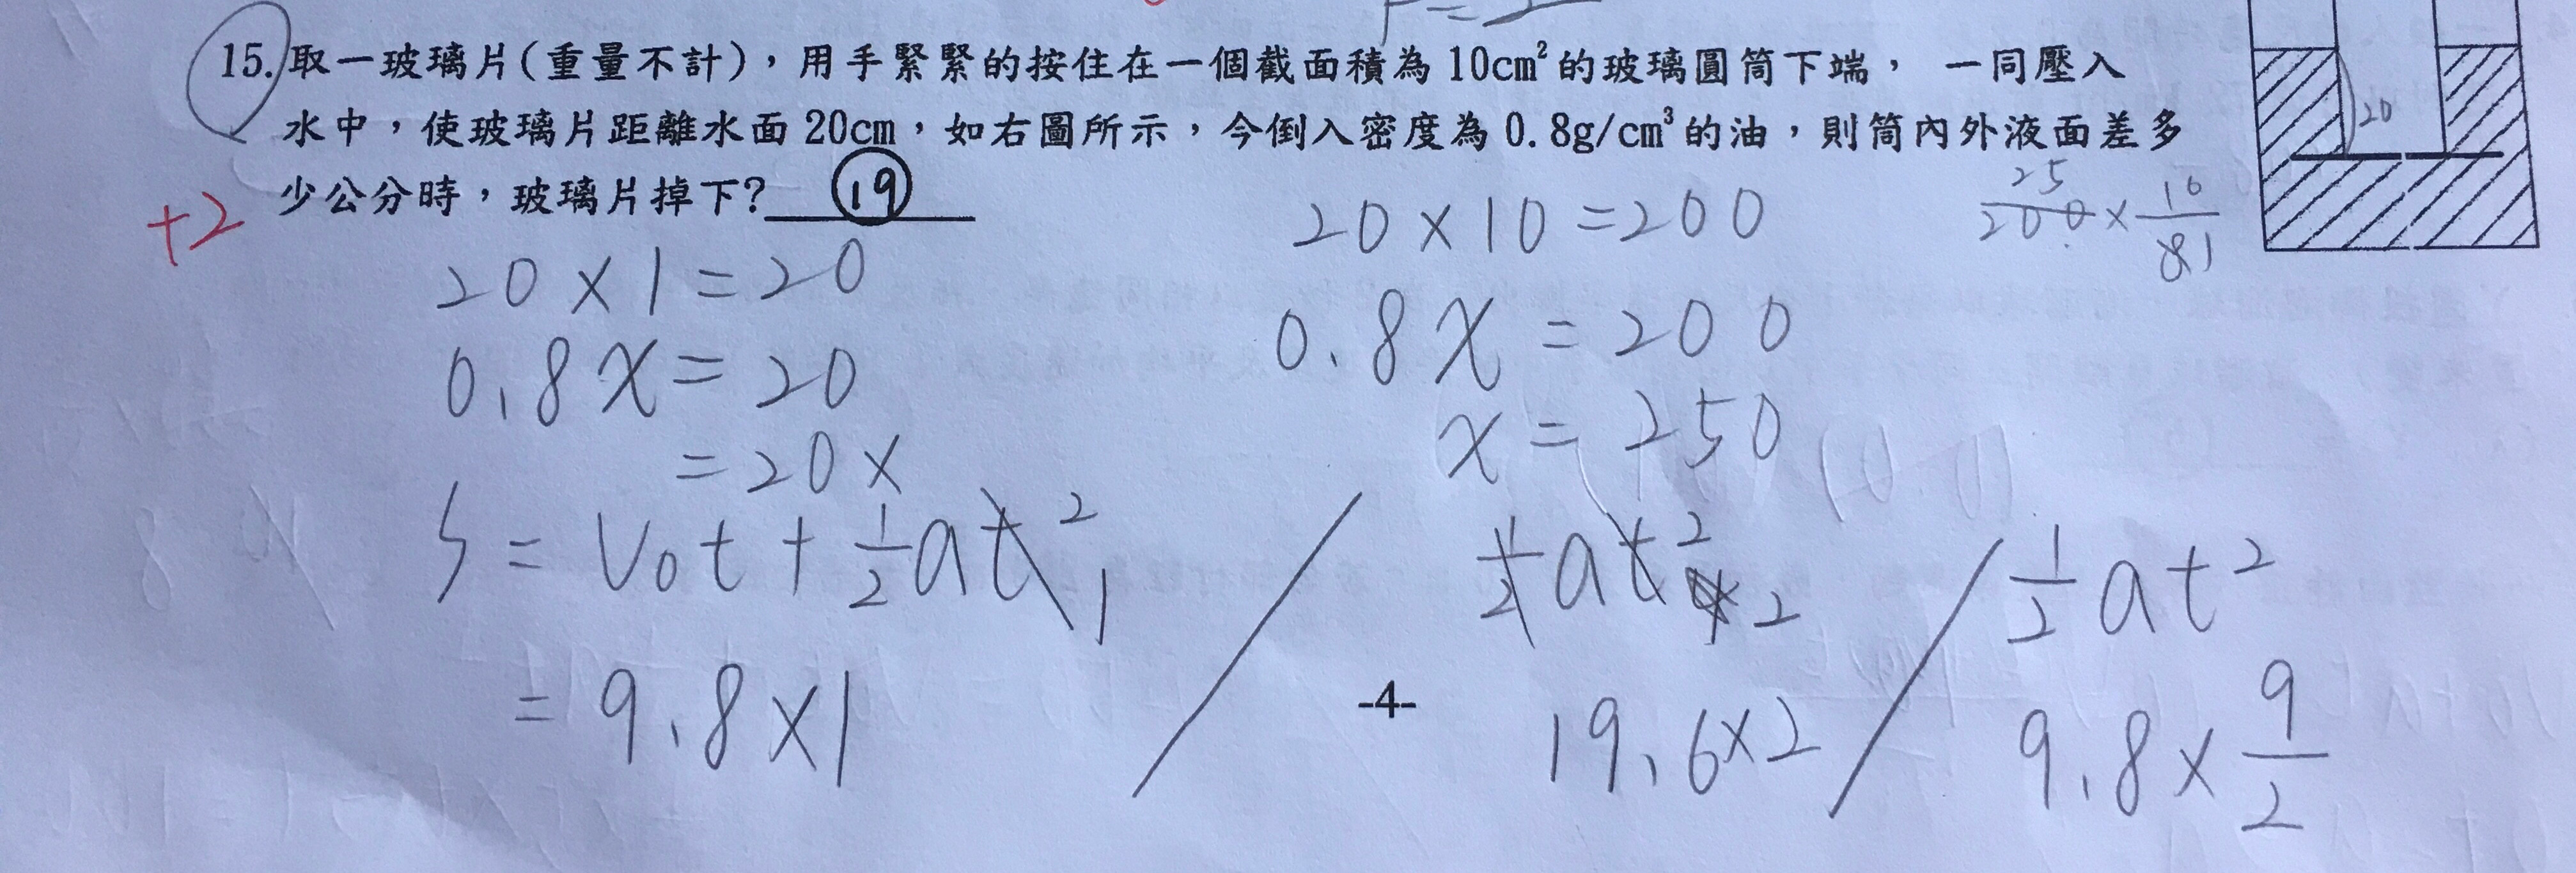 15.取一玻璃片(重量不計)，用手緊緊的按住在一個截面積為10cm²的玻璃圓筒下端， 一同壓入
水中，使玻璃片距離水面20cm，如右圖所示，今倒入密度為0.8g/cm³的油，則筒內外液面差多
少公分時，玻璃片掉下? ⑲
20
+2
20×1=20
0.8x=20
=20×
20×10=200
0.8x=200
x=250
25
200×10/81
S=V₀t+½at² 1
=9.8×1
½at² 2
19.6×2
½at²
9.8×9/2
-4-